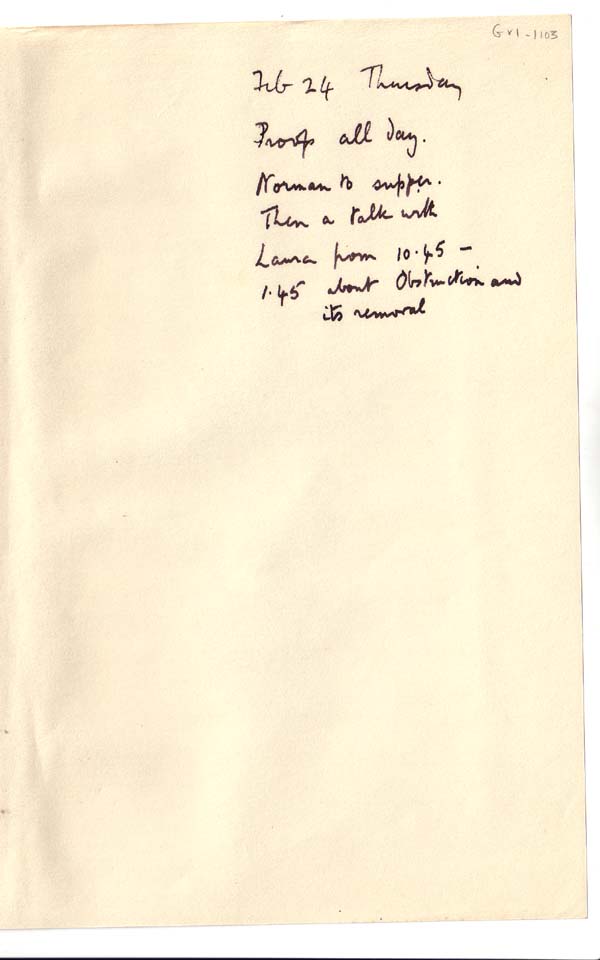 GVI-1103
Feb 24 Thursday
Proofs all day.
Norman to supper.
Then a talk with
Laura from 10.45 –
1.45 about Obstruction and
its removal